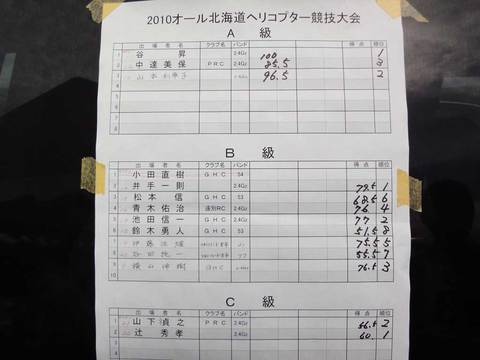 2010オール北海道ヘリコプター競技大会
A 級
出場者名 クラブ名 バンド 得点 順位
1 谷 昇 2.4Gz 100 1
2 中達美保 PRC 2.4Gz 85.5 3
3 96.5 2
4
B 級
出場者名 クラブ名 バンド 得点 順位
1 小田直樹 GHC 54
2 井手一則 2.4Gz 79.5 1
3 松本 信 GHC 53 68.5 6
4 青木佑治 道別RC 2.4Gz 76 4
5 池田信一 GHC 2.4Gz 77 2
6 鈴木勇人 GHC 53 51.5 8
7 75.5 5
8 55.5 7
9 横山 GHC 76.5 3
10
C 級
出場者名 クラブ名 バンド 得点 順位
1 山下貞之 PRC 2.4Gz 56.5 2
2 辻 秀孝 2.4Gz 60 1